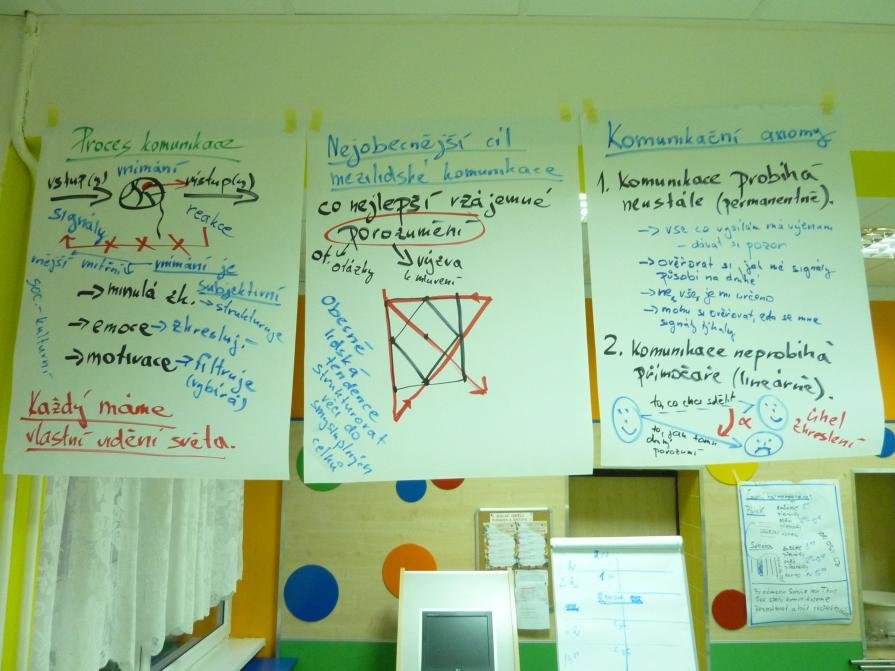 Proces komunikace
vstup(y)
vnímání
výstup(y)
signály
reakce
vnější vnitřní
vnímání je
subjektivní
→ minulá zk. → strukturuje
→ emoce → zkreslují
→ motivace → filtruje
(vybírá)
soc.-kulturní
Každý máme
vlastní vidění světa.
Nejobecnější cíl
mezilidské komunikace
co nejlepší vzájemné
porozumění
ot. otázky
výzva
k mluvení
Obecně
lidská
tendence
strukturovat
věci do
smysluplných
celků
Komunikační axiomy
1. Komunikace probíhá
neustále (permanentně).
→ vše co vysílám má význam
- dávat si pozor
→ ověřovat si, jak mé signály
působí na druhé
→ ne vše je mi určeno
→ mohu si ověřovat, zda se mne
signály týkaly
2. Komunikace neprobíhá
přímočaře (lineárně).
to, co chci sdělit
α
úhel
zkreslení
to, jak tomu
druhý
porozumí